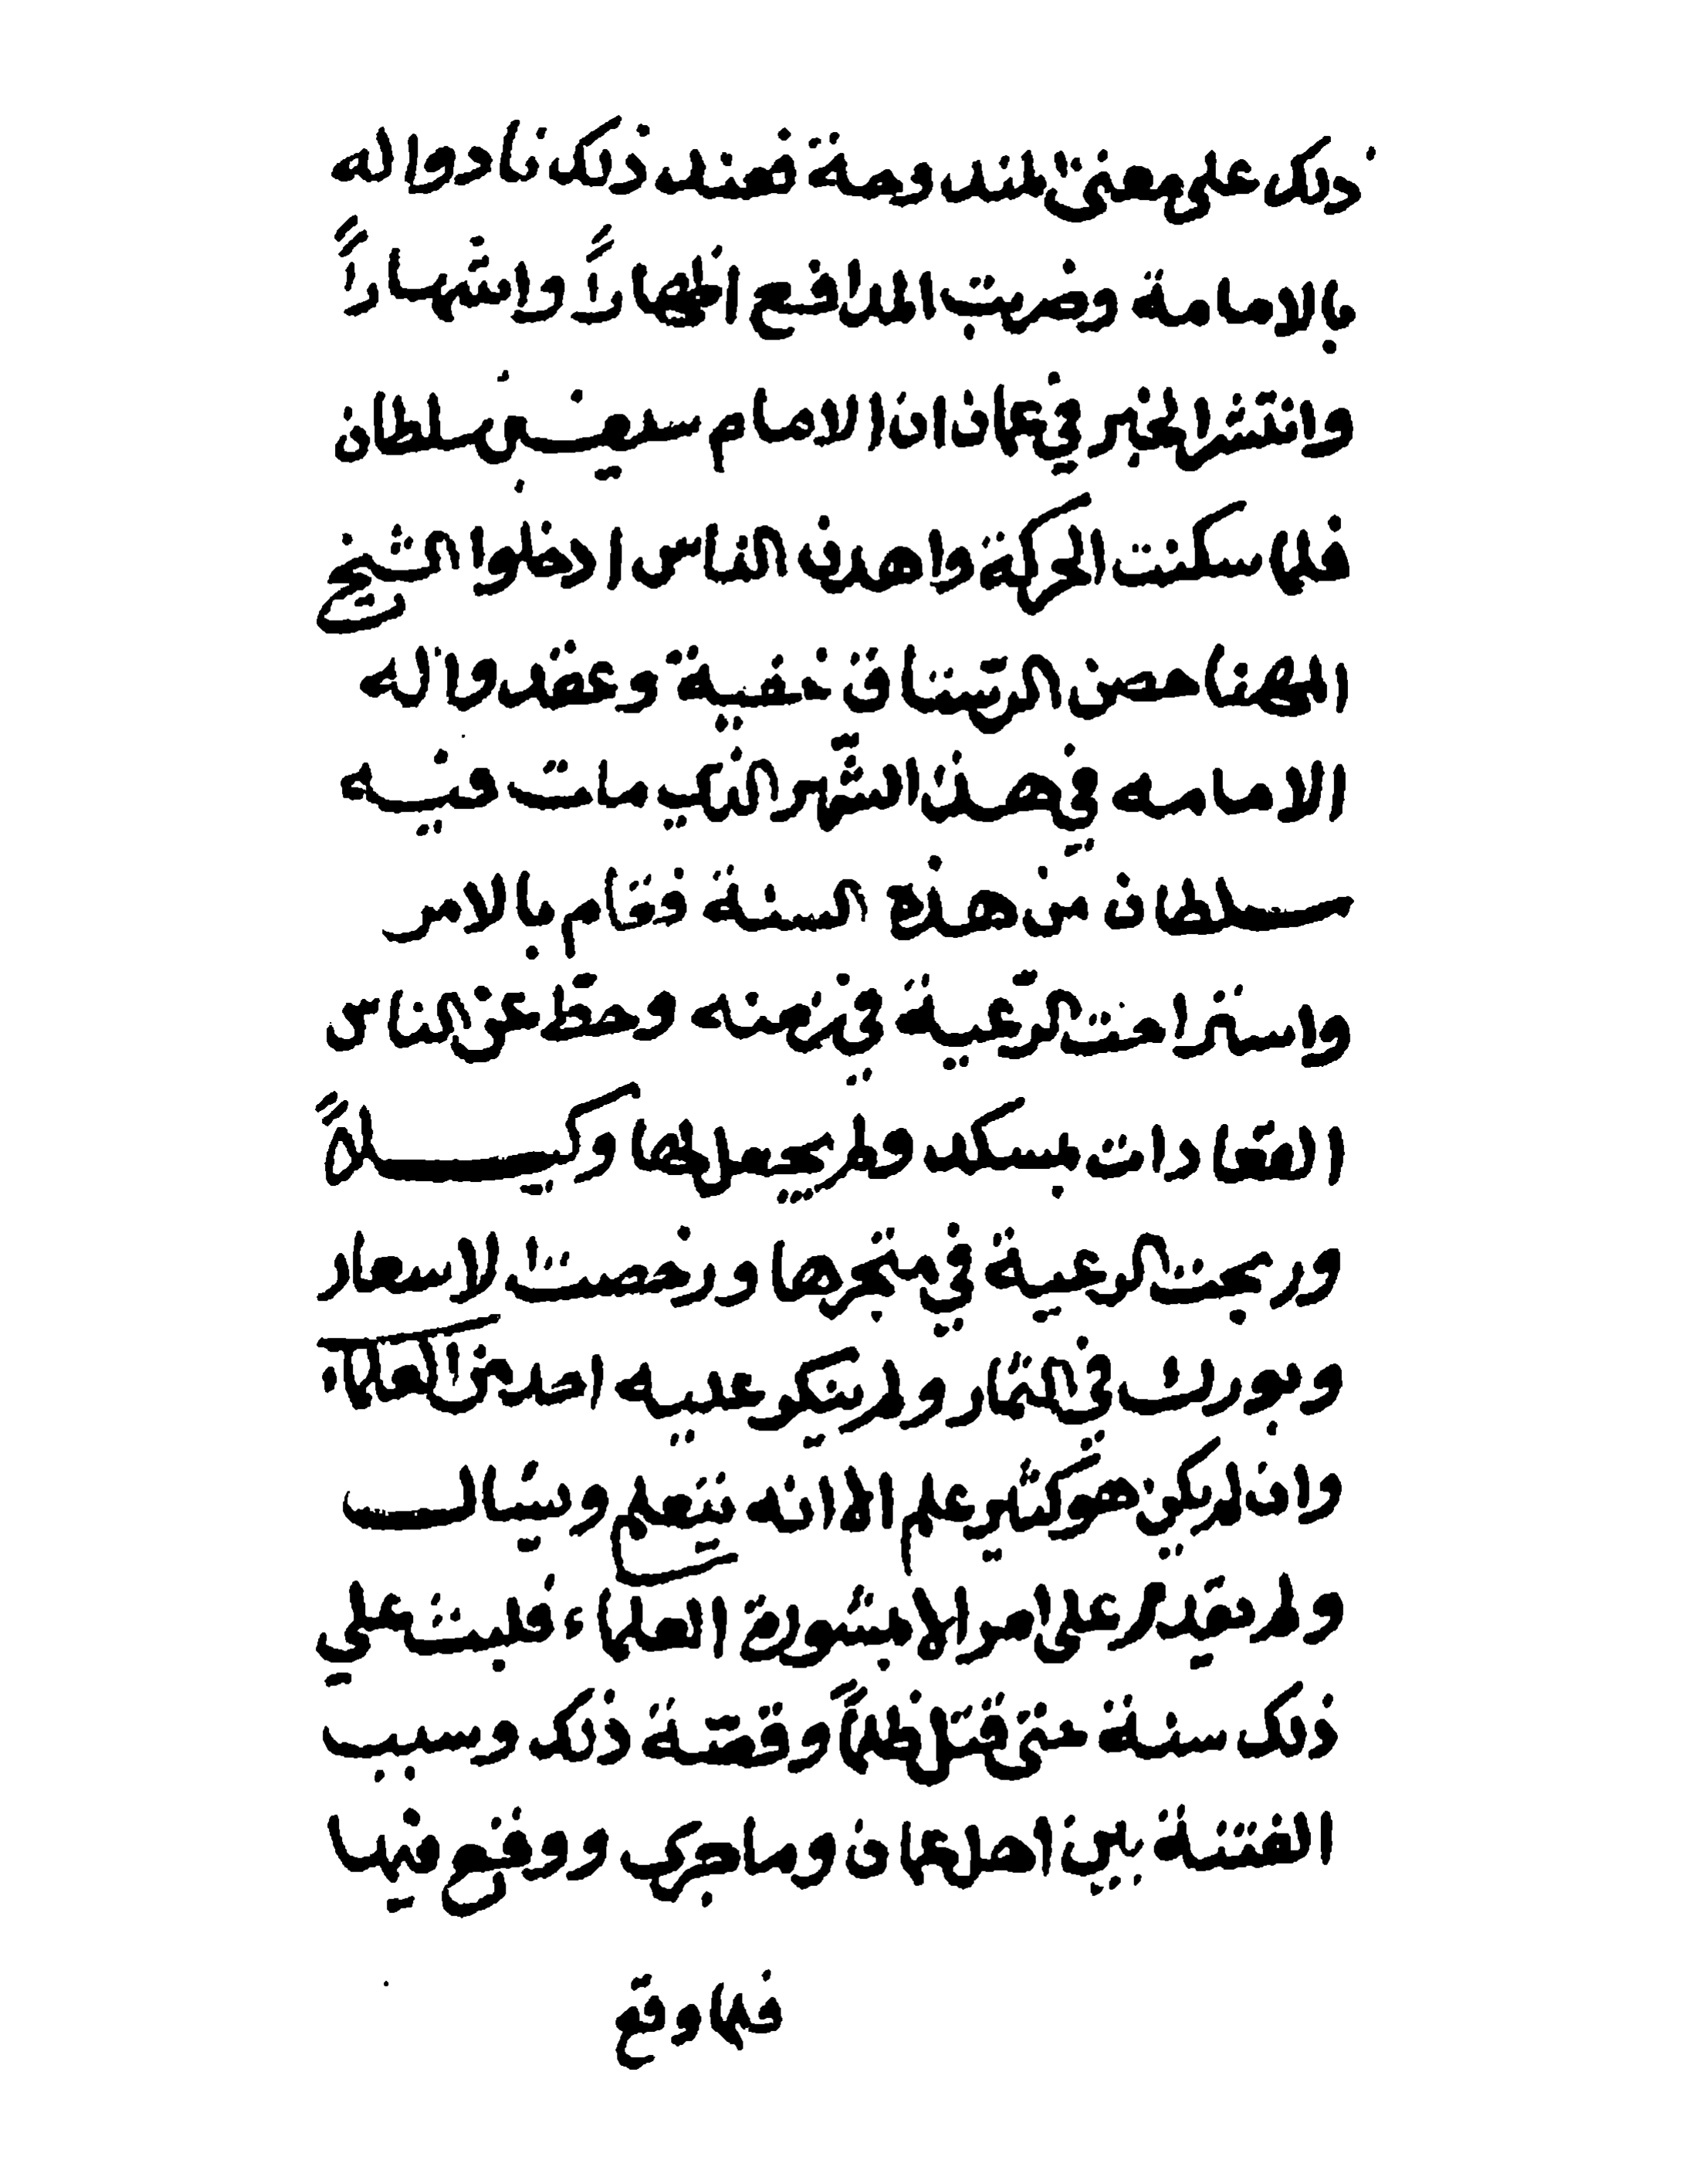 ذلك على معنى المندوحة فعند ذلك نادوا له
بالامامة وضربت المدافع اظهاراً واشهاراً
وانتشر الخبر في عمان ان الامام سيف بن سلطان
فلما سكنت الحركة واهدن الناس ادخلوا الشيخ
المهنا حصن الرستاق خفية وعقدوا له
الامامه في هذا الشهر الذي مات فيه
سلطان من هذه السنة فقام بالامر
واستراحت الرعية في زمنه وحط عن الناس
القعادات بمسكد ولم يجعل لها وكيلاً
وربحت الرعية في متجرها ورخصت الاسعار
وبورك في الثمار ولم ينكر عليه احد من العلماء
وان لم يكن هو كثير علم الا انه يتعلم ويسال
ولم يقدم على امر الا بمشورة العلماء فلبث على
ذلك سنة حتى قتل ظلماً وقصة ذلك وسبب
الفتنة بين اهل عمان وما جرى ووقع فيها
فلما وقع